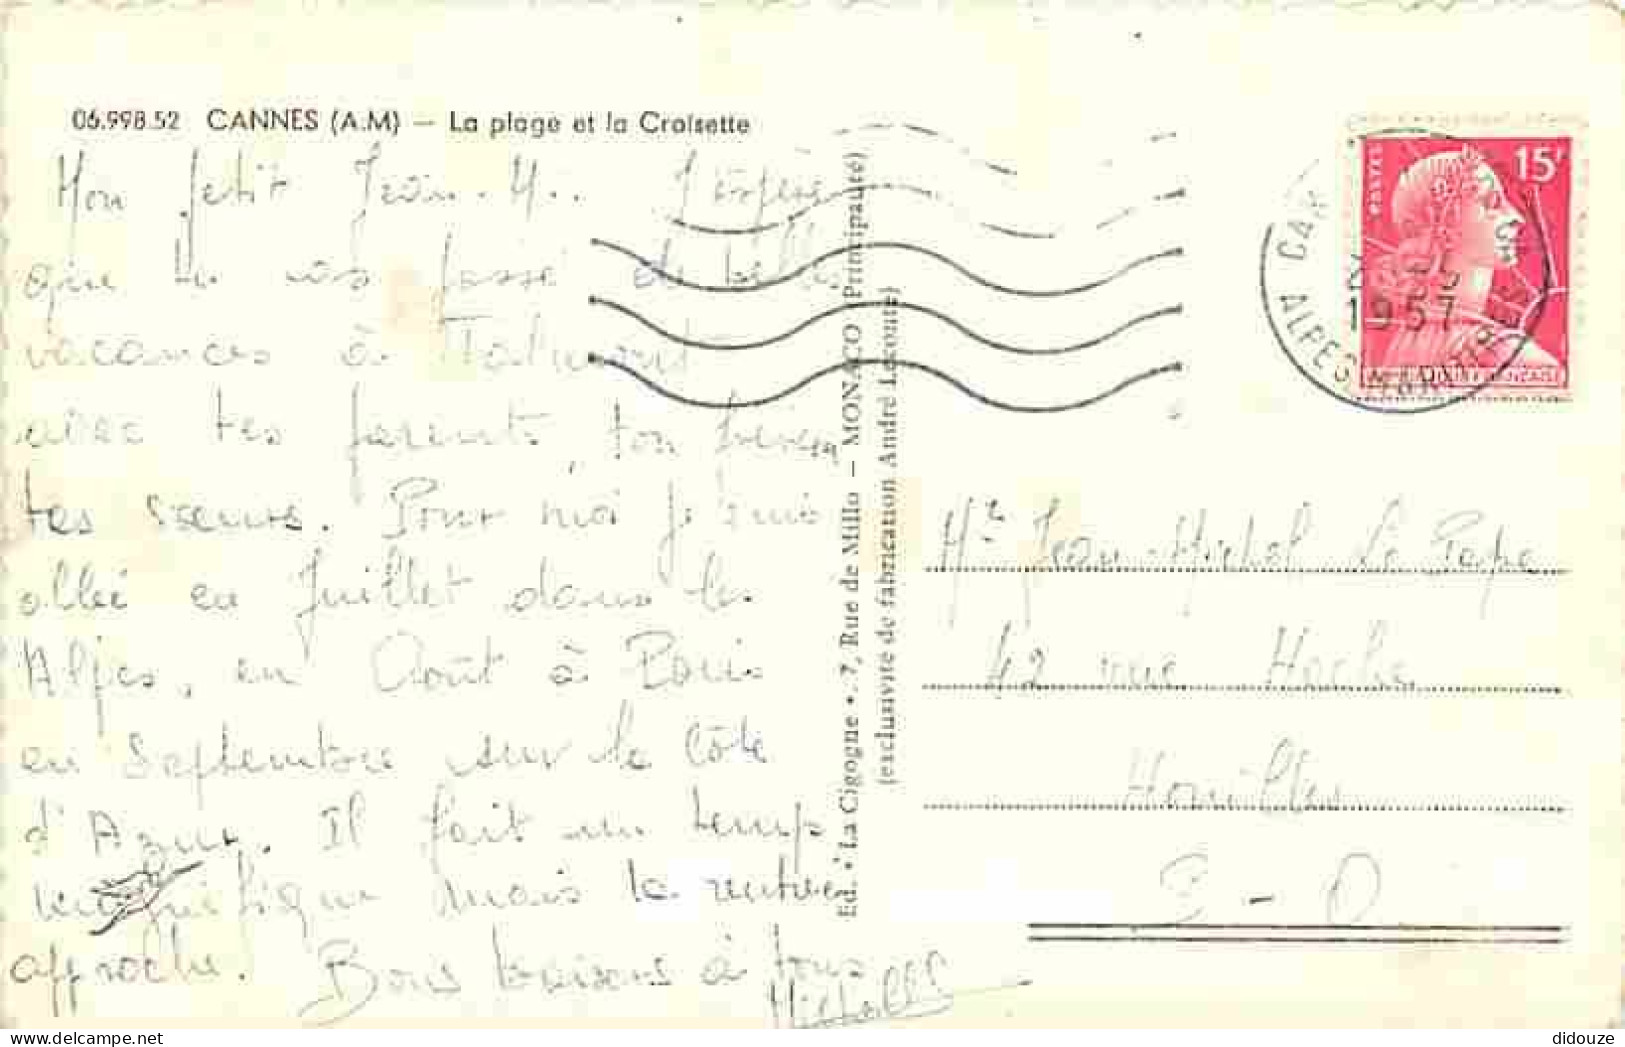 06.998.52 CANNES (A.M) — La plage et la Croisette
15F
POSTES
1957
ALPES MARITIMES
Mon petit Jean-M.. J'espère
que tu as passé de belles
vacances à Talmont
avec tes parents, ton frère,
tes sœurs. Pour moi je suis
allée en Juillet dans les
Alpes, en Août à Paris
en Septembre sur la Côte
d'Azur. Il fait un temps
magnifique mais la rentrée
approche. Bons baisers à tous
Ed. "La Cigogne", 7, Rue de Millo — MONACO (Principauté)
(exclusivité de fabrication André Leconte)
Mr Jean-Michel Le Pape
42 rue Hoche
Houilles
S-O
didouze